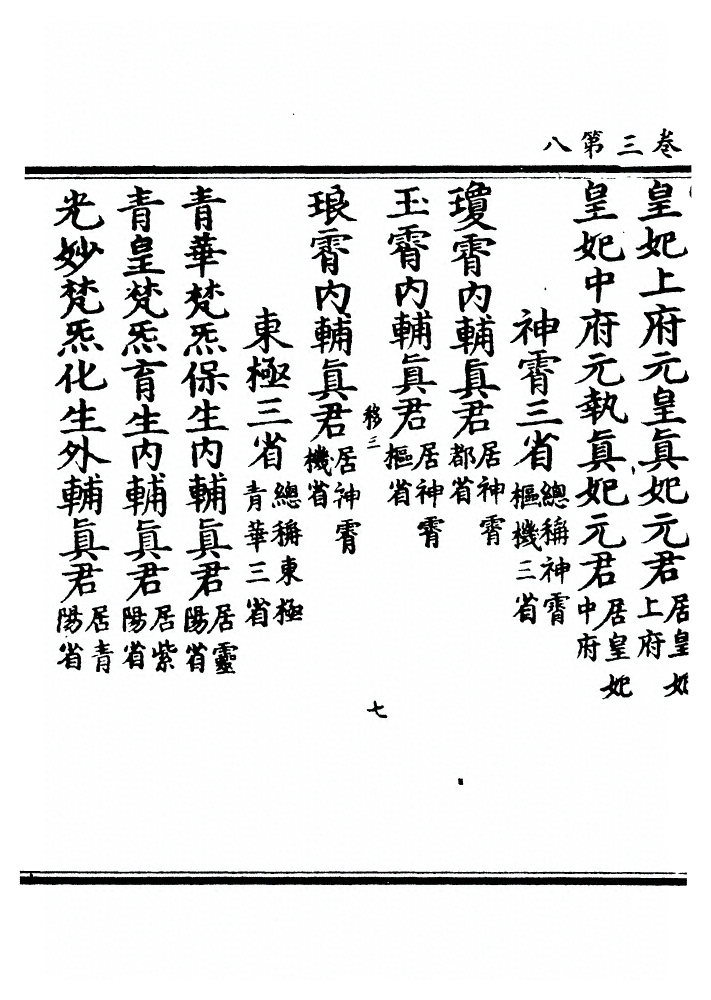 卷三第八
皇妃上府元皇眞妃元君居皇妃上府
皇妃中府元執眞妃元君居皇妃中府
神霄三省總稱神霄樞機三省
瓊霄內輔眞君居神霄都省
玉霄內輔眞君居神霄樞省
移三
七
琅霄內輔眞君居神霄機省
東極三省總稱東極青華三省
青華梵炁保生內輔眞君居靈陽省
青皇梵炁育生內輔眞君居紫陽省
光妙梵炁化生外輔眞君居青陽省